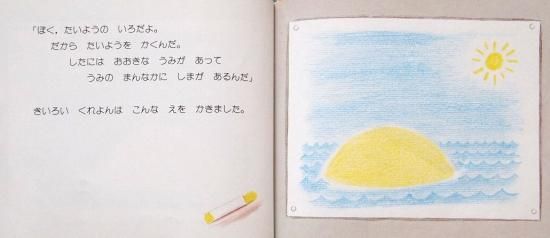 「ぼく，たいようの　いろだよ。
だから　たいようを　かくんだ。
したには　おおきな　うみが　あって
うみの　まんなかに　しまが　あるんだ」
きいろい　くれよんは　こんな　えを　かきました。